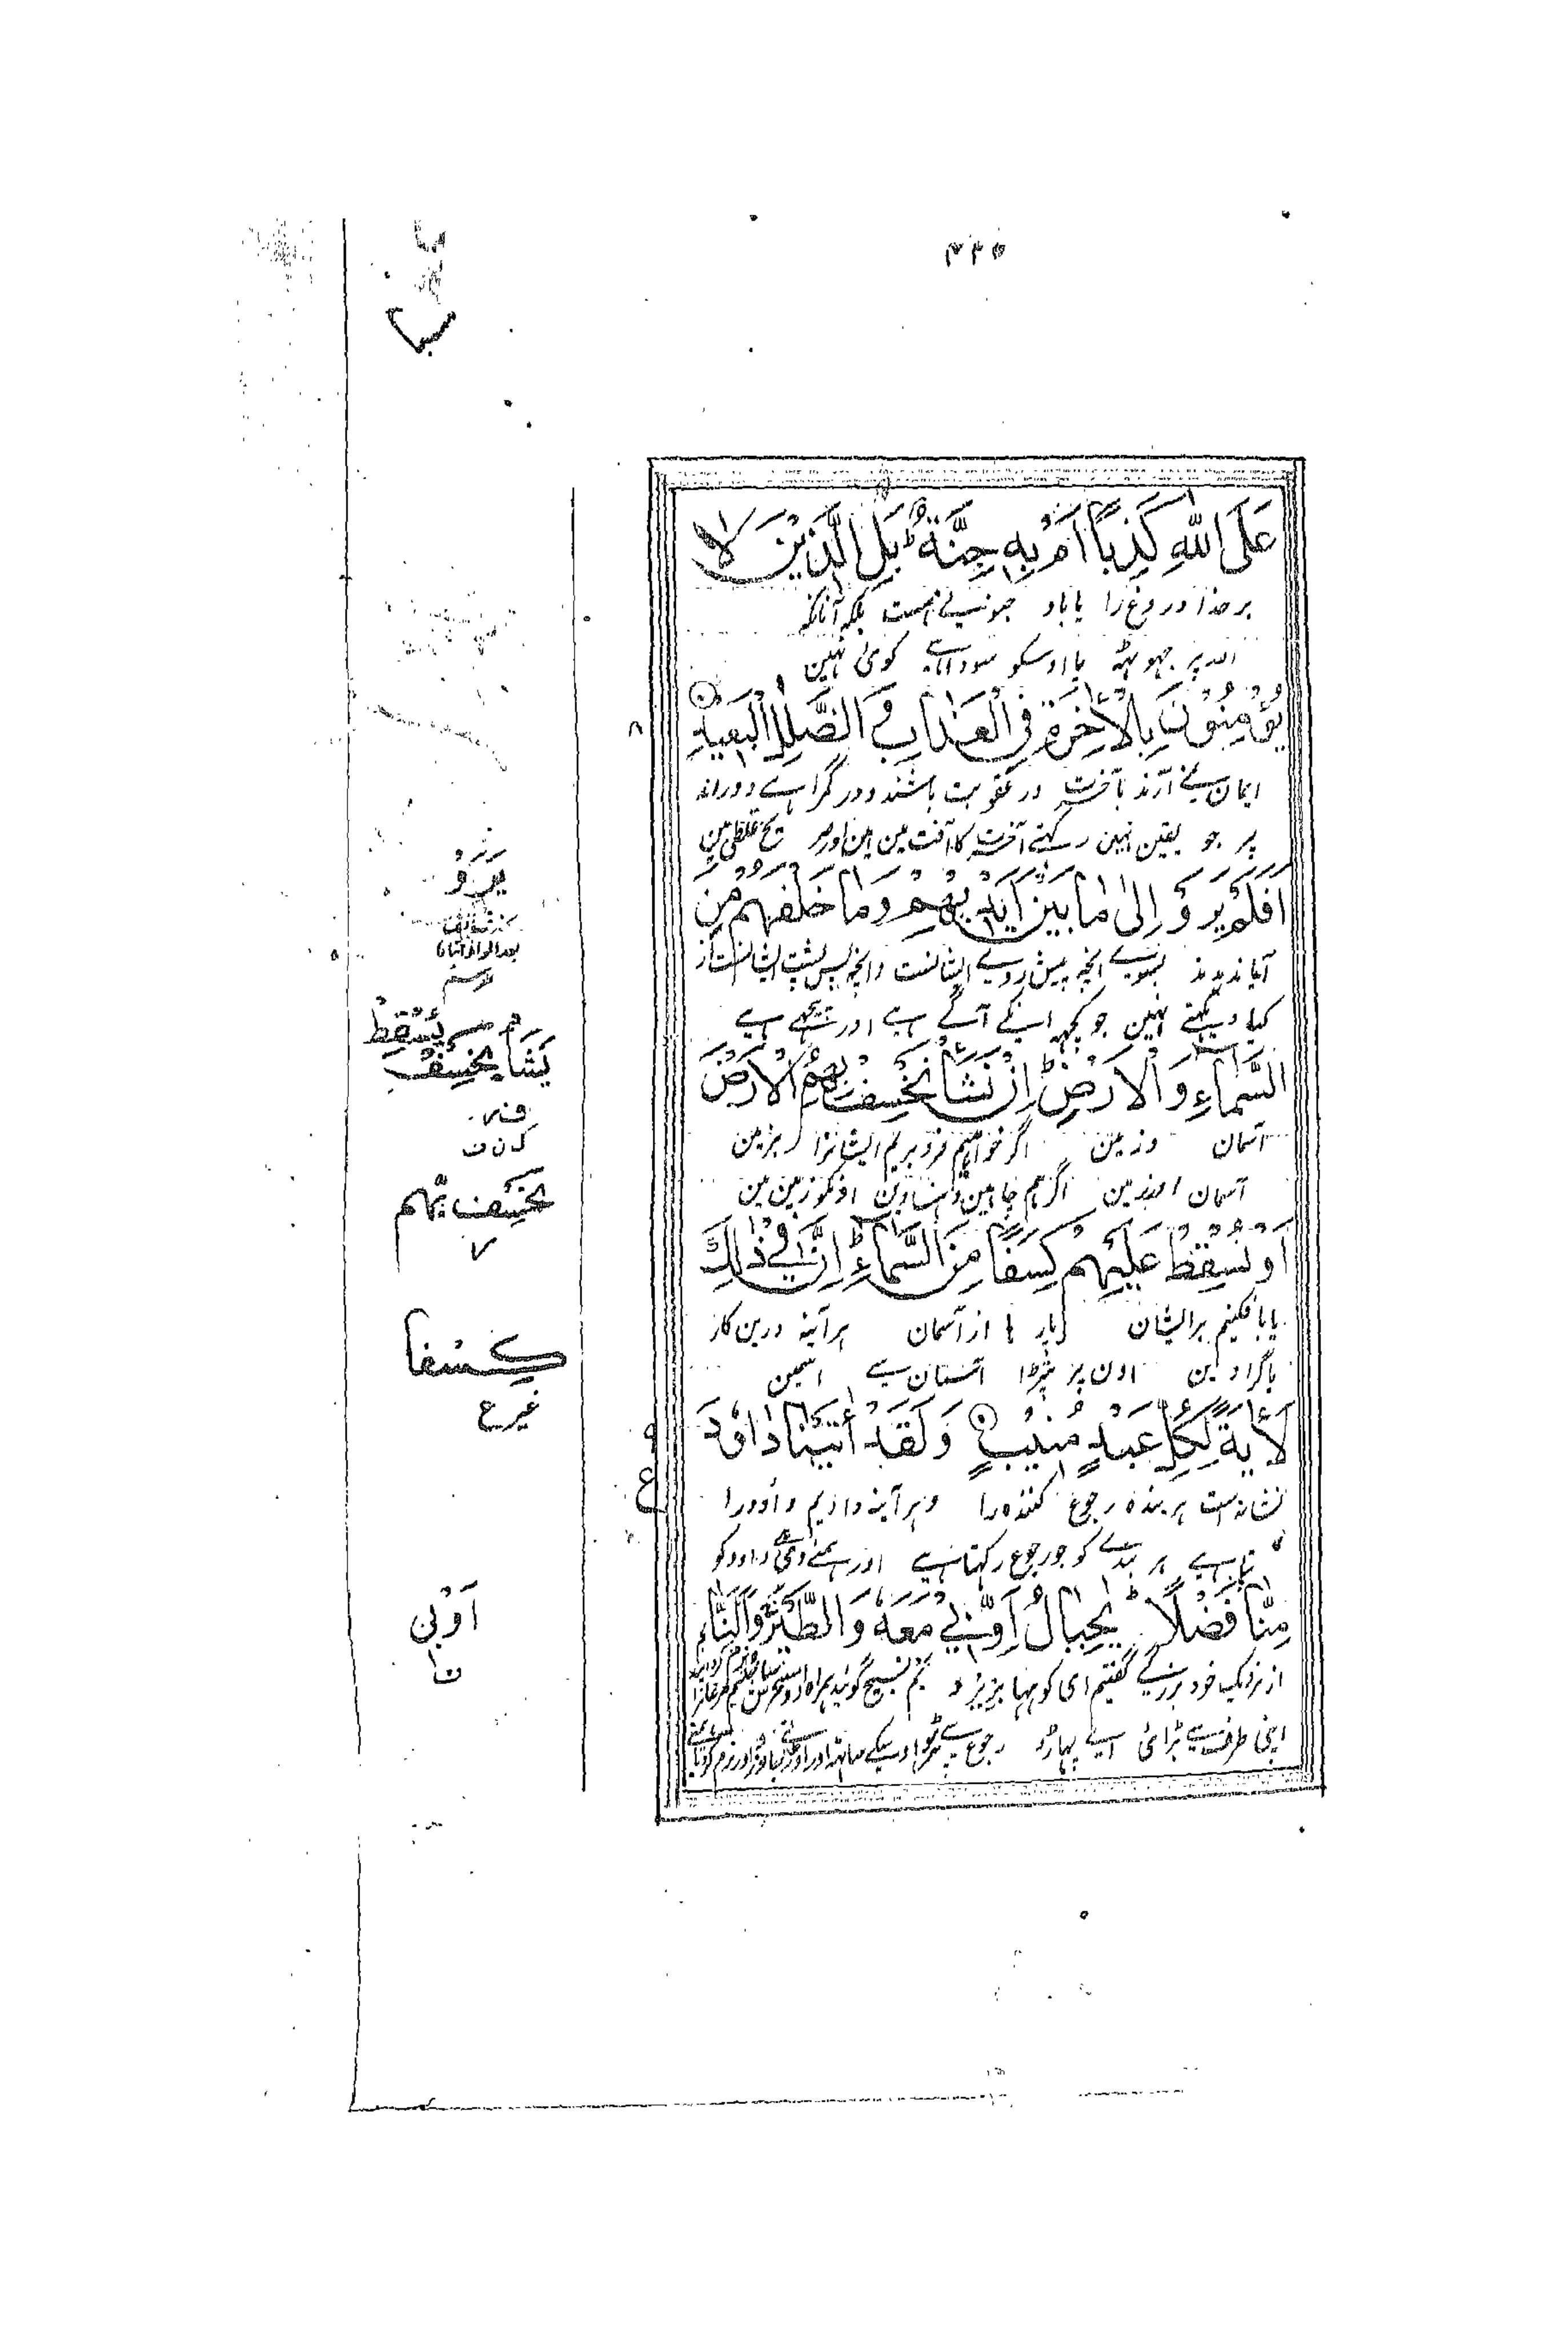 ۴۴۵
سبا
عَلَى اللّٰهِ كَذِبًا اَمْ بِهٖ جِنَّةٌ ؕ بَلِ الَّذِيْنَ لَا
بر خدا دروغ را یا باو جنونے ہست بلکہ آنانکہ
اللہ پر جھوٹھہ یا اوسکو سودا ہے کوئی نہین
يُؤْمِنُوْنَ بِالْاٰخِرَةِ فِي الْعَذَابِ وَالضَّلٰلِ الْبَعِيْدِ
۸
ایمان نمے آرند بآخرت در عقوبت باشند و در گمراہے دوراند
پر جو یقین نہین رکہتے آخرت کا آفت مین ہین اور صریح غلطی مین
اَفَلَمْ يَرَوْا اِلٰى مَا بَيْنَ اَيْدِيْهِمْ وَمَا خَلْفَهُمْ مِّنَ
آیا ندیدند بسوے آنچہ پیش روے ایشانست و آنچہ پس پشت ایشانست از
کیا دیکہتے نہین جو کچہہ انکے آگے ہے اور پیچہے ہے
السَّمَآءِ وَالْاَرْضِ ؕ اِنْ نَّشَاْ نَخْسِفْ بِهِمُ الْاَرْضَ
آسمان و زمین اگر خواہیم فرو بریم ایشانرا بزمین
آسمان اور زمین اگر ہم چاہین دہنسا دین اونکو زمین مین
اَوْ نُسْقِطْ عَلَيْهِمْ كِسَفًا مِّنَ السَّمَآءِ ؕ اِنَّ فِيْ ذٰلِكَ
یا بافکنیم بر ایشان از آسمان ہر آینہ درین کار
یا گرا دین اون پر آسمان سے اسمین
لَاٰيَةً لِّكُلِّ عَبْدٍ مُّنِيْبٍ وَلَقَدْ اٰتَيْنَا دَاوٗدَ
۹
ع
نشانہ است ہر بندہ رجوع کنندہ را و ہر آینہ دادیم داؤد را
پتا ہے ہر بندے کو جو رجوع رکہتا ہے اور ہمنے دی داود کو
مِنَّا فَضْلًا ؕ يٰجِبَالُ اَوِّبِيْ مَعَهٗ وَالطَّيْرَ ۚ وَاَلَنَّا
از نزدیک خود بزرگے گفتیم ای کوہہا تسبیح گوئید ہمراہ او
اپنی طرف سے بڑائی اے پہاڑو رجوع سے پڑہو اوسکے ساتھ اور
يَرَوْ
يُسْقِطْ
يَشَا يَخْسِفْ
نَخْسِف بِّهِم
كِسْفا
غیر ع
اَوِّبِى